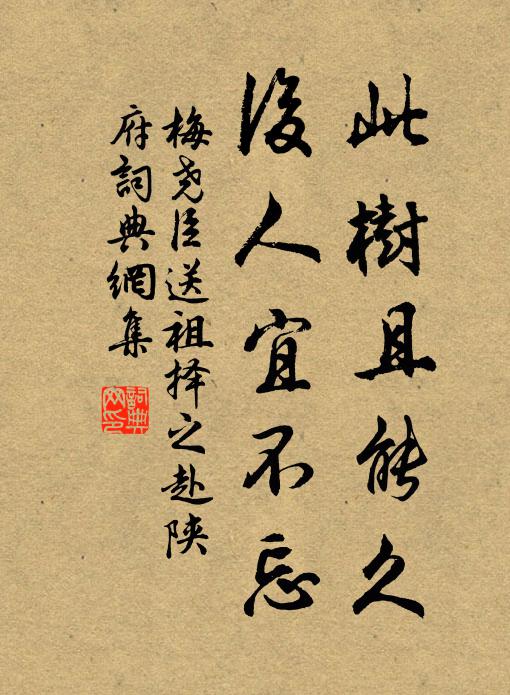 此樹且能久
後人宜不忘
梅堯臣送祖择之赴陕
府詞典網集
詞典网印